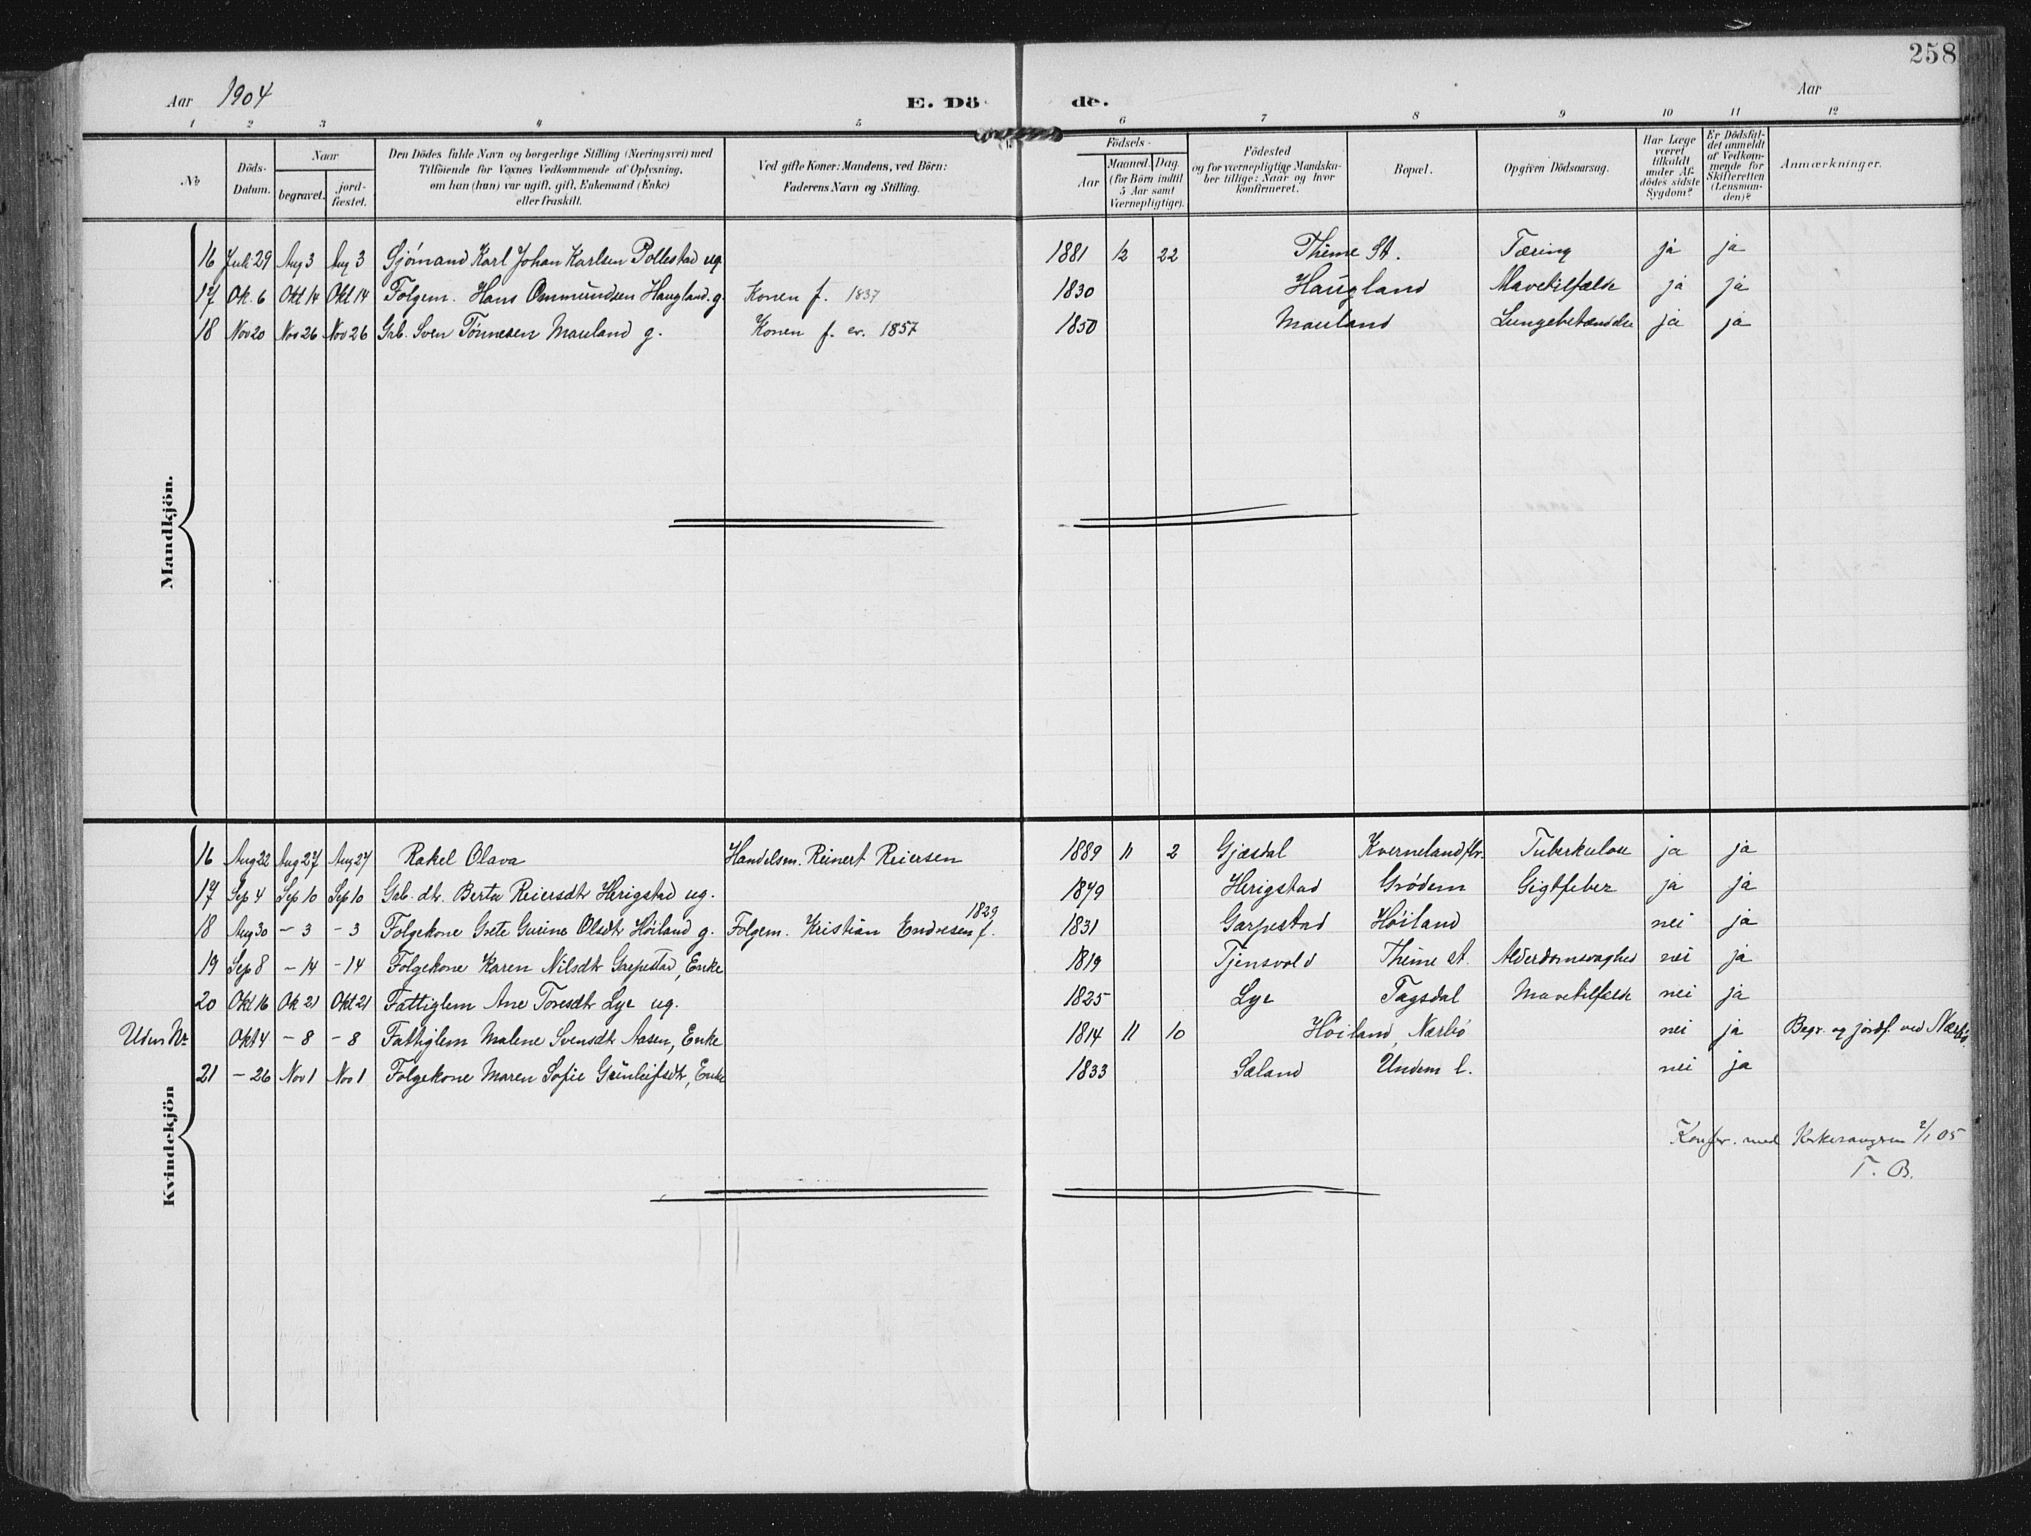 258
Aar 1904 E. Dö- de. Aar
1 2 3 4 5 6 7 8 9 10 11 12
No Döds-Datum. Naar begravet. jord-fæstet. Den Dödes fulde Navn og borgerlige Stilling (Næringsvei) med Tilföiende for Voxnes Vedkommende af Oplysning, om han (hun) var ugift, gift, Enkemand (Enke) eller fraskilt. Ved gifte Koner: Mandens, ved Börn: Faderens Navn og Stilling. Födsels- Aar Maaned. Dag. (for Börn indtil 5 Aar samt Værnepligtige). Födested og for værnepligtige Mandska-ber tillige: Naar og hvor konfirmeret. Bopæl. Opgiven Dödsaarsag. Har Læge været tilkaldt under Af-dödes sidste Sygdom? Er Dödsfal-det anmeldt af Vedkom-mende for Skifteretten (Lensman-den)? Anmærkninger.
Mandkjön.
16 Juli 29 Aug 3 Aug 3 Sjømand Karl Johan Karlsen Pollestad ug. 1881 12 22 Thime St. Tæring ja ja
17 Ok. 6 Okt 14 Okt 14 Folgem. Hans Ommundsen Haugland. g. Konen f. 1837 1830 Haugland Mavetilfælde ja ja
18 Nov 20 Nov 26 Nov 26 Grb. Sven Tønnesen Mauland g. Konen f. er. 1857 1850 Mauland Lungebetændelse ja ja
Kvindekjön
16 Aug 22 Aug 27 Aug 27 Rakel Olava Handelsm. Reinert Reiersen 1889 11 2 Gjæsdal Kverneland fbr. Tuberkulose ja ja
17 Sep 4 Sep 10 Sep 10 Grb. dtr. Berta Reiersdtr Herigstad ug. 1879 Herigstad Grødem Gigtfeber ja ja
18 Aug 30 – 3 – 3 Folgekone Grete Gurine Olsdtr Höiland g. Folgem. Kristian Endresen f. 1829 1831 Garpestad Höiland nei ja
19 Sep 8 – 14 – 14 Folgekone Karen Nilsdtr Grepestad, Enke 1819 Tjensvold Thime st. Alderdomsvaghed nei ja
20 Okt 16 Ok 21 Okt 21 Fattiglem Ane Toresdtr Lye ug. 1825 Lye Tagsdal Mavetilfælde nei ja
Uden Nr Okt 4 – 8 – 8 Fattiglem Malene Svensdtr Aasen, Enke 1814 11 10 Höiland, Nærbö nei ja Begr. og jordf. ved Nærbö.
21 – 26 Nov 1 Nov 1 Folgekone Maren Sofie Gunleifsdtr, Enke 1833 Sæland Undem l. nei ja
Konfer. med 2/1 05
T. B.